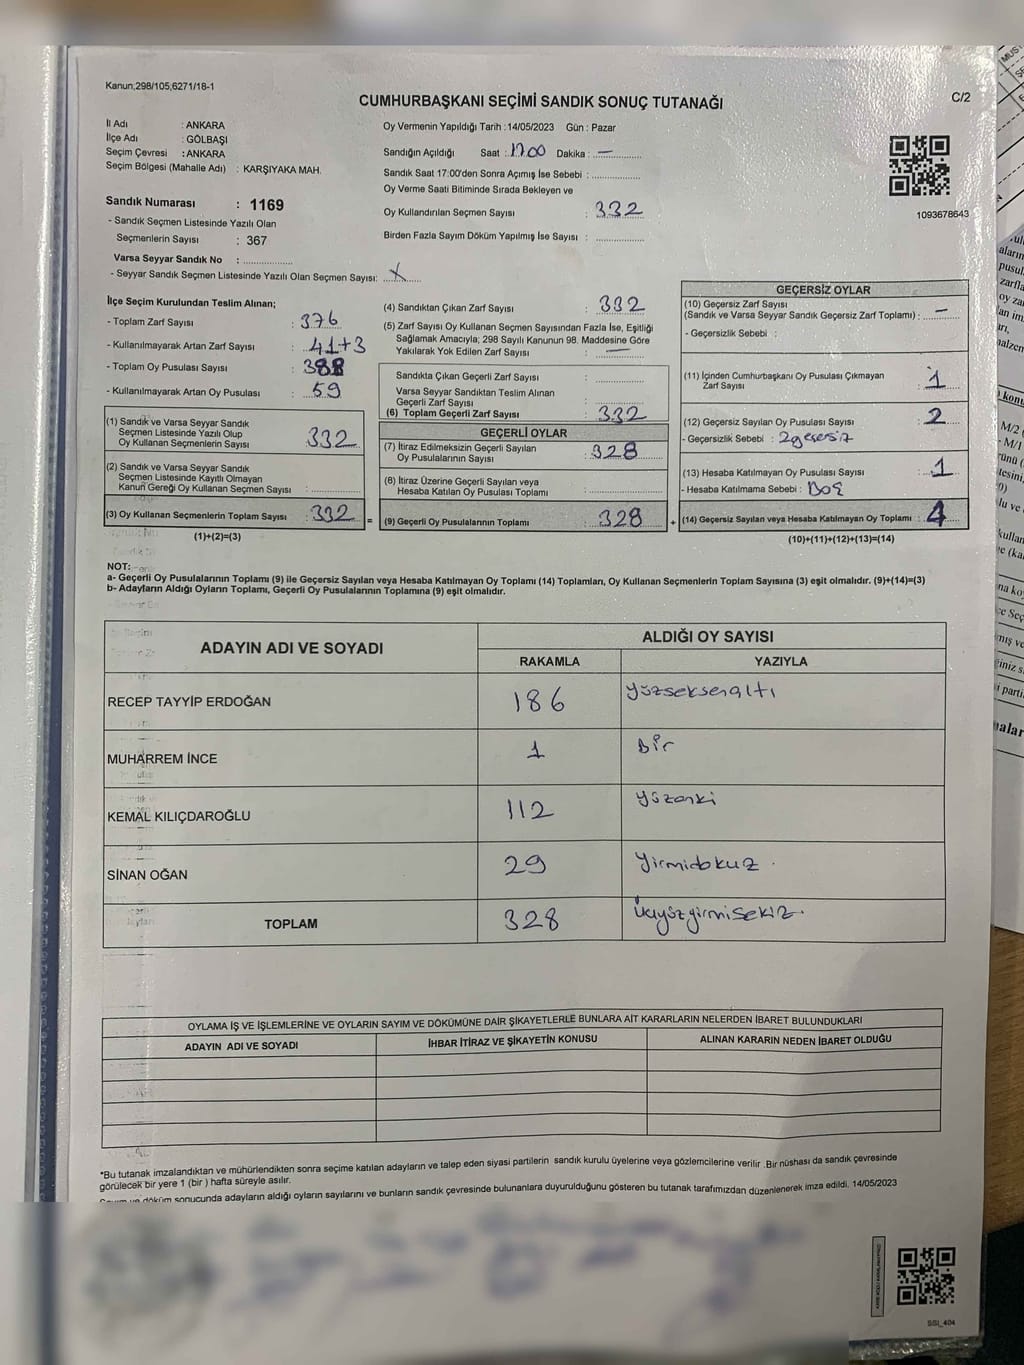 Kanun;298/105;6271/18-1
CUMHURBAŞKANI SEÇİMİ SANDIK SONUÇ TUTANAĞI
C/2
İl Adı : ANKARA
İlçe Adı : GÖLBAŞI
Seçim Çevresi : ANKARA
Seçim Bölgesi (Mahalle Adı) : KARŞIYAKA MAH.
Sandık Numarası : 1169
- Sandık Seçmen Listesinde Yazılı Olan
Seçmenlerin Sayısı : 367
Varsa Seyyar Sandık No :
- Seyyar Sandık Seçmen Listesinde Yazılı Olan Seçmen Sayısı: X
Oy Vermenin Yapıldığı Tarih :14/05/2023 Gün : Pazar
Sandığın Açıldığı Saat : 17.00 Dakika : —
Sandık Saat 17:00'den Sonra Açımış İse Sebebi :
Oy Verme Saati Bitiminde Sırada Bekleyen ve
Oy Kullandırılan Seçmen Sayısı : 332
Birden Fazla Sayım Döküm Yapılmış İse Sayısı :
1093678643
İlçe Seçim Kurulundan Teslim Alınan;
- Toplam Zarf Sayısı : 376
- Kullanılmayarak Artan Zarf Sayısı : 41+3
- Toplam Oy Pusulası Sayısı : 388
- Kullanılmayarak Artan Oy Pusulası : 59
(1) Sandık ve Varsa Seyyar Sandık
Seçmen Listesinde Yazılı Olup
Oy Kullanan Seçmenlerin Sayısı : 332
(2) Sandık ve Varsa Seyyar Sandık
Seçmen Listesinde Kayıtlı Olmayan
Kanun Gereği Oy Kullanan Seçmen Sayısı :
(3) Oy Kullanan Seçmenlerin Toplam Sayısı : 332
(1)+(2)=(3)
(4) Sandıktan Çıkan Zarf Sayısı : 332
(5) Zarf Sayısı Oy Kullanan Seçmen Sayısından Fazla İse, Eşitliği
Sağlamak Amacıyla; 298 Sayılı Kanunun 98. Maddesine Göre
Yakılarak Yok Edilen Zarf Sayısı : —
Sandıkta Çıkan Geçerli Zarf Sayısı :
Varsa Seyyar Sandıktan Teslim Alınan
Geçerli Zarf Sayısı :
(6) Toplam Geçerli Zarf Sayısı : 332
GEÇERLİ OYLAR
(7) İtiraz Edilmeksizin Geçerli Sayılan
Oy Pusulalarının Sayısı : 328
(8) İtiraz Üzerine Geçerli Sayılan veya
Hesaba Katılan Oy Pusulası Toplamı :
= (9) Geçerli Oy Pusulalarının Toplamı : 328
GEÇERSİZ OYLAR
(10) Geçersiz Zarf Sayısı
(Sandık ve Varsa Seyyar Sandık Geçersiz Zarf Toplamı) : —
- Geçersizlik Sebebi :
(11) İçinden Cumhurbaşkanı Oy Pusulası Çıkmayan
Zarf Sayısı : 1
(12) Geçersiz Sayılan Oy Pusulası Sayısı : 2
- Geçersizlik Sebebi : 2geçersiz
(13) Hesaba Katılmayan Oy Pusulası Sayısı : 1
- Hesaba Katılmama Sebebi : Boş
+ (14) Geçersiz Sayılan veya Hesaba Katılmayan Oy Toplamı : 4
(10)+(11)+(12)+(13)=(14)
NOT:
a- Geçerli Oy Pusulalarının Toplamı (9) ile Geçersiz Sayılan veya Hesaba Katılmayan Oy Toplamı (14) Toplamları, Oy Kullanan Seçmenlerin Toplam Sayısına (3) eşit olmalıdır. (9)+(14)=(3)
b- Adayların Aldığı Oyların Toplamı, Geçerli Oy Pusulalarının Toplamına (9) eşit olmalıdır.
ADAYIN ADI VE SOYADI
ALDIĞI OY SAYISI
RAKAMLA YAZIYLA
RECEP TAYYİP ERDOĞAN 186 yüzseksenaltı
MUHARREM İNCE 1 bir
KEMAL KILIÇDAROĞLU 112 yüzoniki
SİNAN OĞAN 29 yirmidokuz
TOPLAM 328 üçyüzyirmisekiz
OYLAMA İŞ VE İŞLEMLERİNE VE OYLARIN SAYIM VE DÖKÜMÜNE DAİR ŞİKAYETLERLE BUNLARA AİT KARARLARIN NELERDEN İBARET BULUNDUKLARI
ADAYIN ADI VE SOYADI İHBAR İTİRAZ VE ŞİKAYETİN KONUSU ALINAN KARARIN NEDEN İBARET OLDUĞU
*Bu tutanak imzalandıktan ve mühürlendikten sonra seçime katılan adayların ve talep eden siyasi partilerin sandık kurulu üyelerine veya gözlemcilerine verilir .Bir nüshası da sandık çevresinde
görülecek bir yere 1 (bir ) hafta süreyle asılır.
Sayım ve döküm sonucunda adayların aldığı oyların sayılarını ve bunların sandık çevresinde bulunanlara duyurulduğunu gösteren bu tutanak tarafımızdan düzenlenerek imza edildi. 14/05/2023
SSI_404